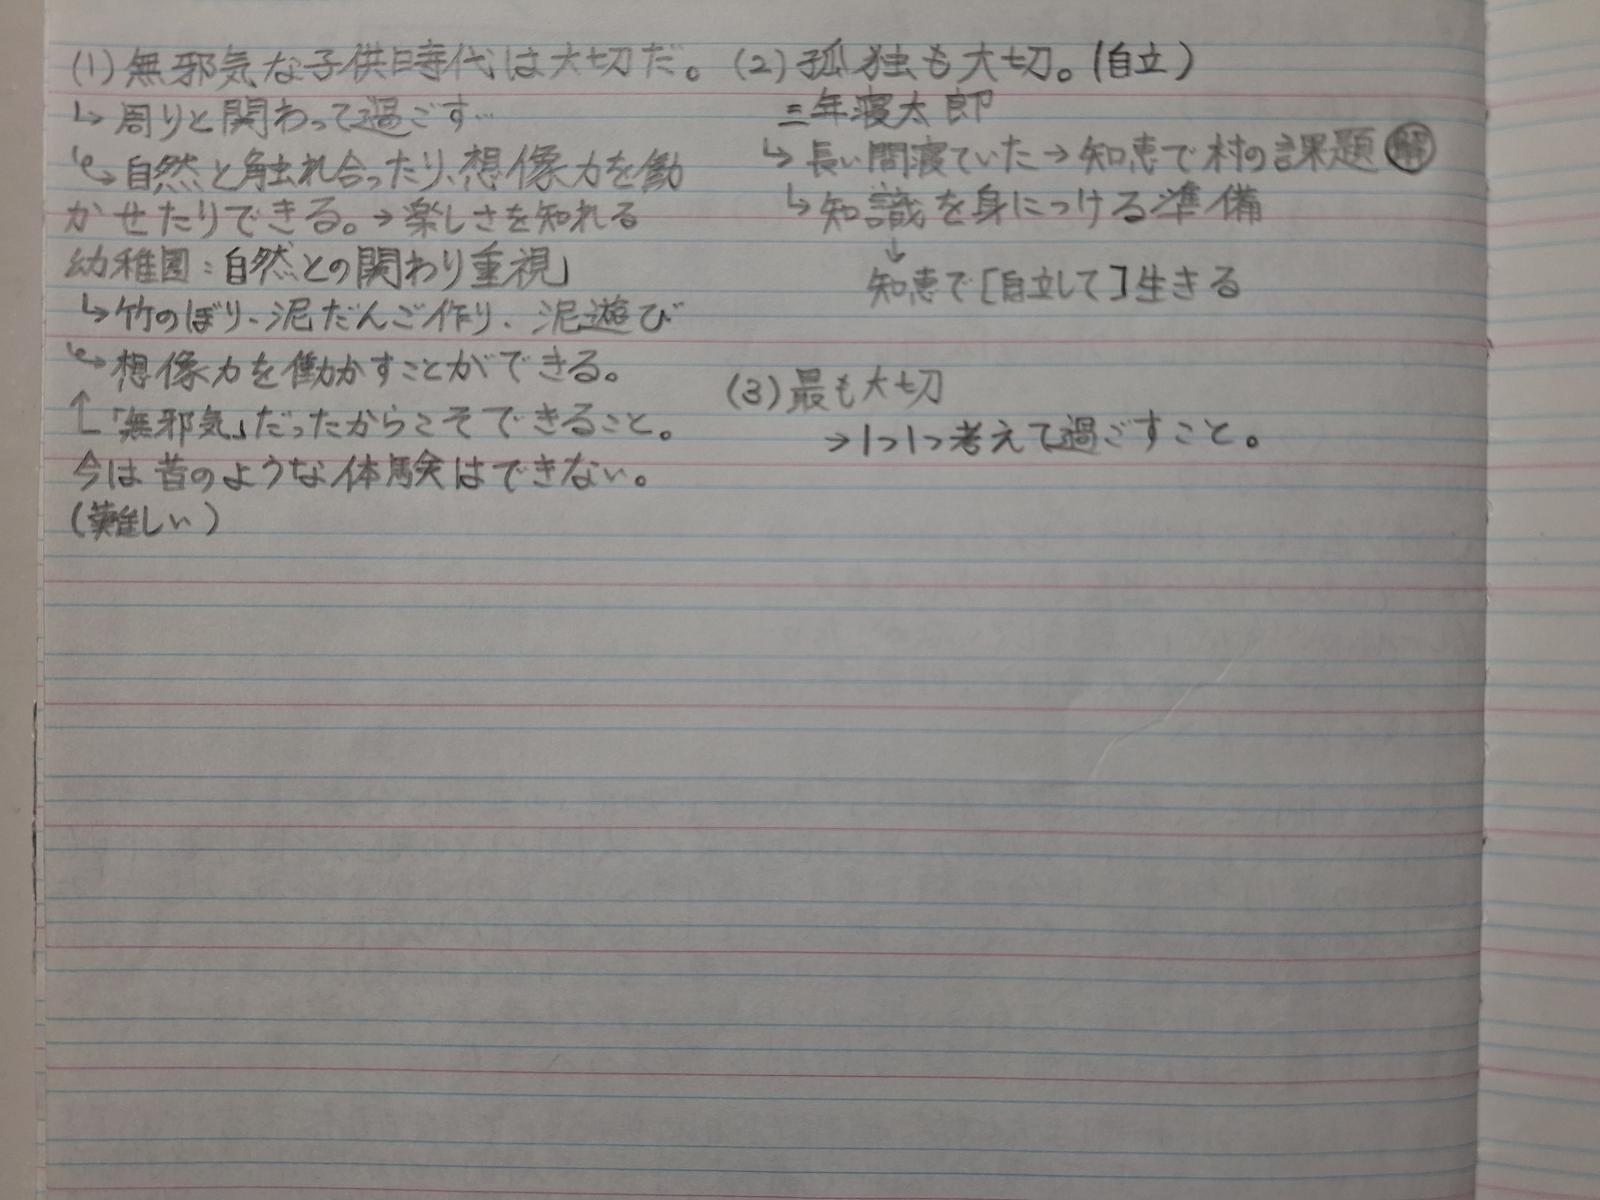 (1)無邪気な子供時代は大切だ。
↳周りと関わって過ごす…
↳自然と触れ合ったり、想像力を働
かせたりできる。→楽しさを知れる
幼稚園:自然との関わり重視」
↳竹のぼり、泥だんご作り、泥遊び
↳想像力を働かすことができる。
↑「無邪気」だったからこそできること。
今は昔のような体験はできない。
(難しい)
(2)孤独も大切。(自立)
三年寝太郎
↳長い間寝ていた→知恵で村の課題解
↳知識を身につける準備
↓
知恵で[自立して]生きる
(3)最も大切
→1つ1つ考えて過ごすこと。